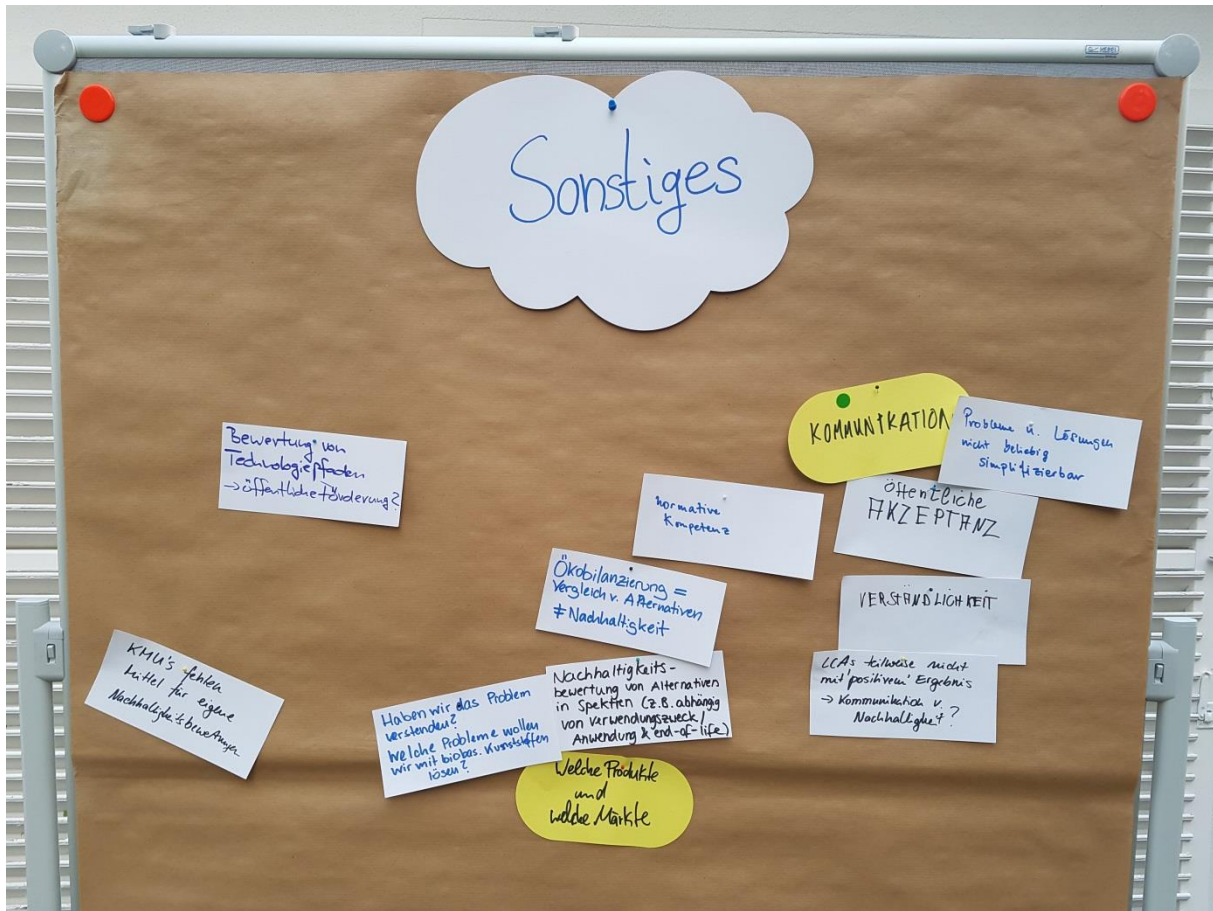 Sonstiges
KOMMUNIKATION
Probleme u. Lösungen
nicht beliebig
simplifizierbar
Bewertung von
Technologiepfaden
→ öffentliche Förderung?
normative
Kompetenz
öffentliche
AKZEPTANZ
Ökobilanzierung =
Vergleich v. Alternativen
≠ Nachhaltigkeit
VERSTÄNDLICHKEIT
KMU's fehlen
Mittel für eigene
Nachhaltigkeitsbewertungen
Haben wir das Problem
verstanden?
Welche Probleme wollen
wir mit biobas. Kunststoffen
lösen?
Nachhaltigkeits-
bewertung von Alternativen
in Spektren (z.B. abhängig
von Verwendungszweck/
Anwendung & end-of-life)
LCAs teilweise nicht
mit 'positivem' Ergebnis
→ Kommunikation v.
Nachhaltigkeit?
Welche Produkte
und
welche Märkte